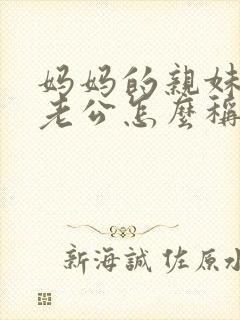 妈妈的親妹
老公怎麼稱
新海誠 佐原水